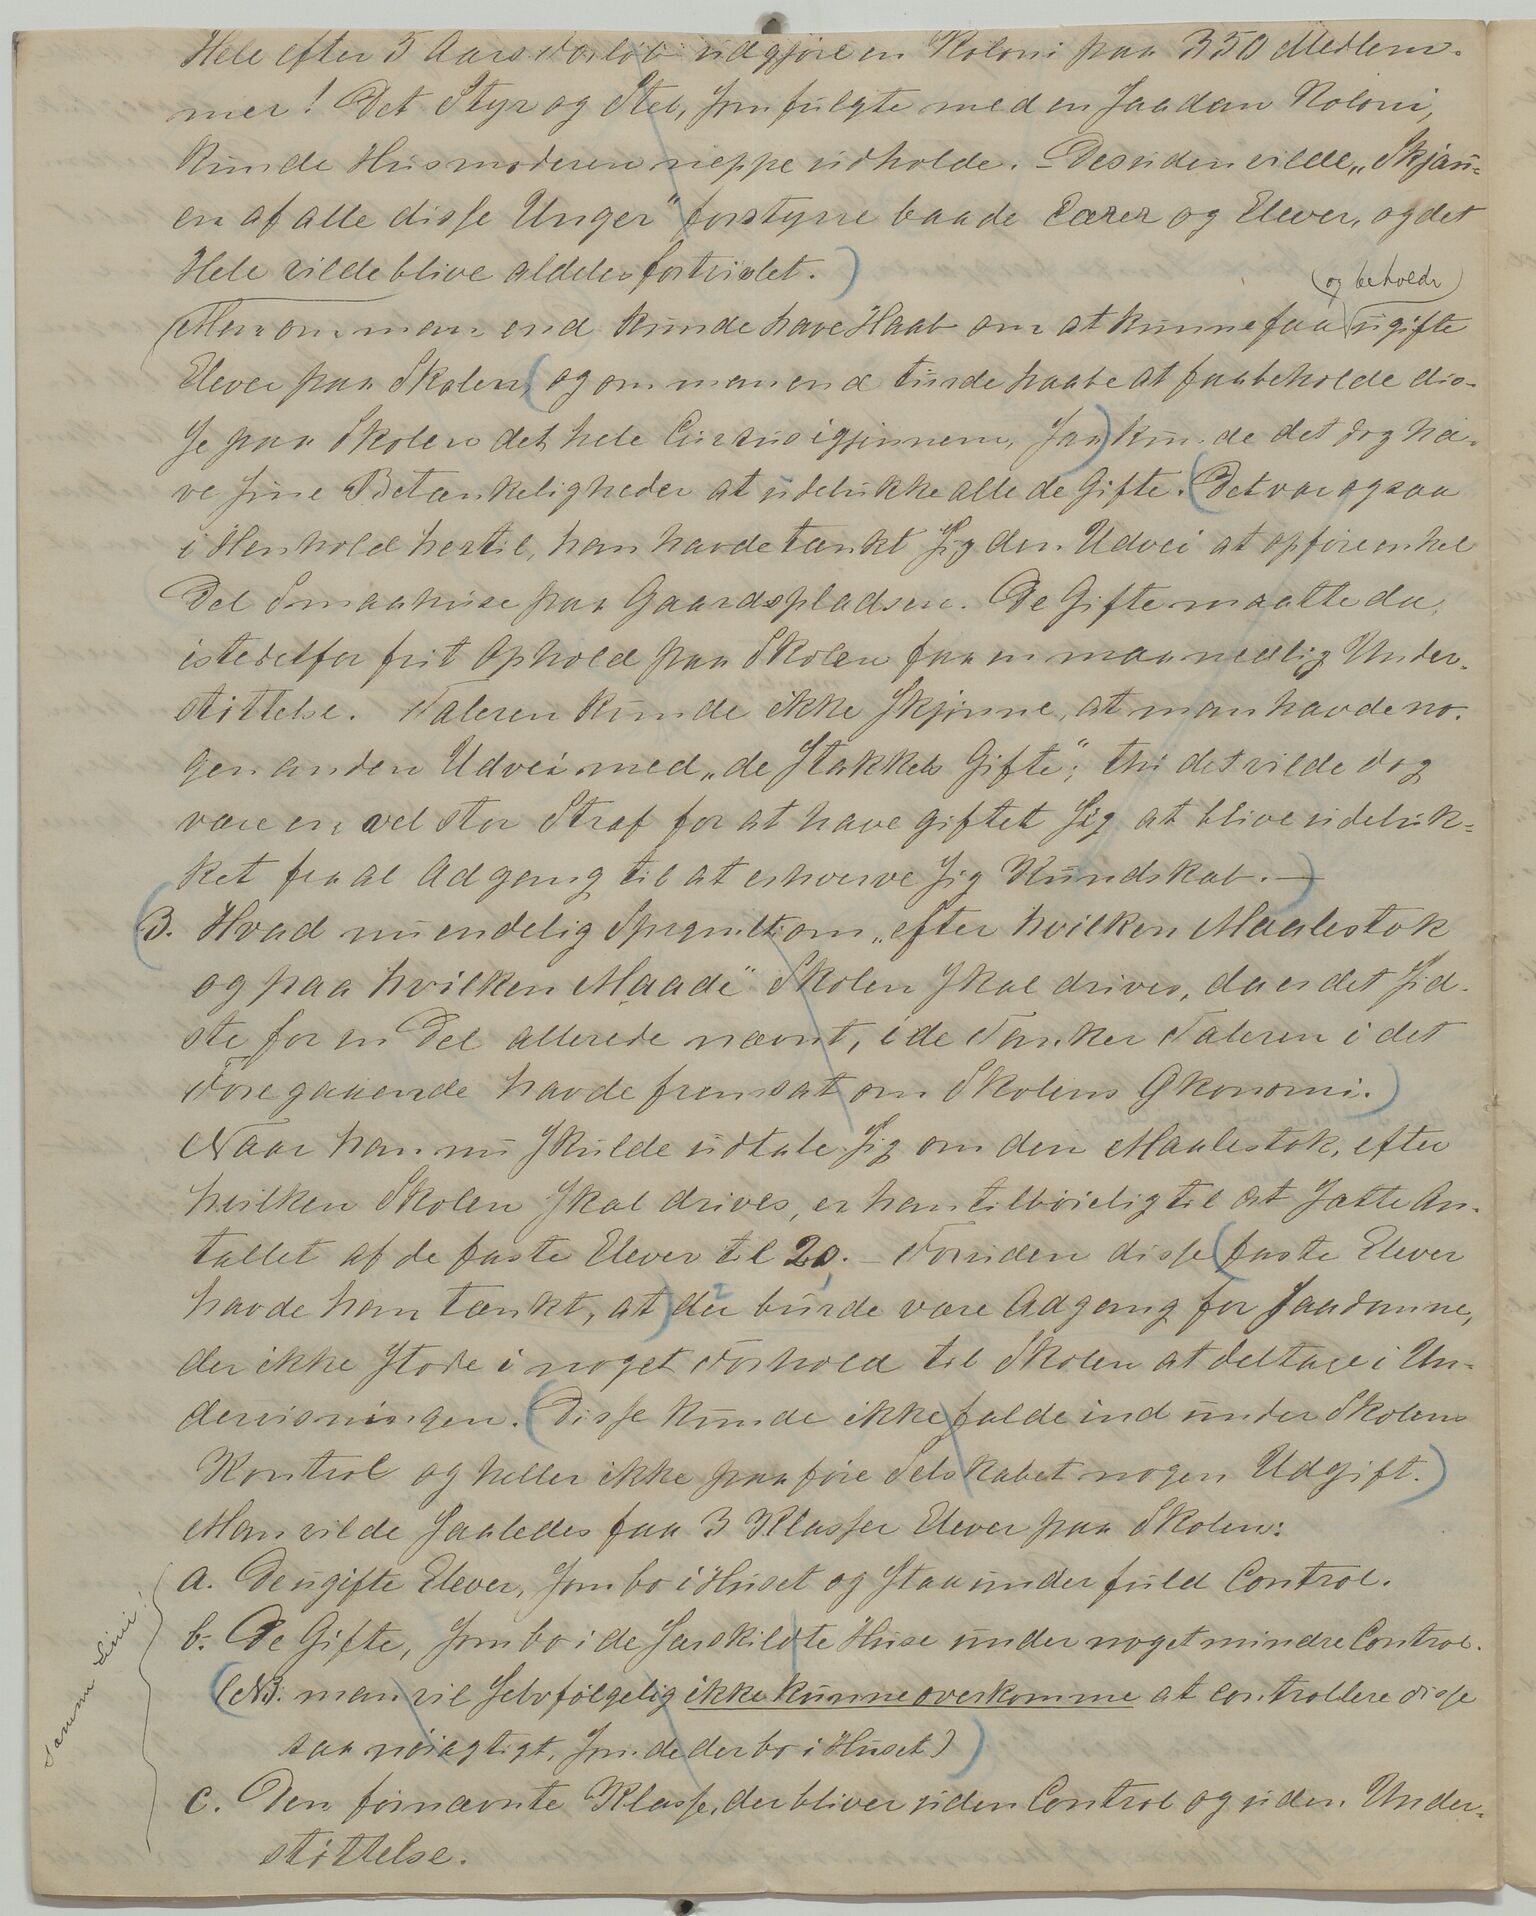 Hele efter 5 Aars Forløb udgjøre en Koloni paa 350 Medlem-
mer! Det Styr og Stel, som fulgte med en saadan Koloni,
kunde Husmoderen neppe udholde. – Desuden vilde „Skjau-
en af alle disse Unger“ forstyrre baade Lærer og Elever, og det
Hele vilde blive aldeles fortvivlet.)
(og beholde)
(Men om man end kunde have Haab om at kunne faa ugifte
Elever paa Skolen, (og om man end turde haabe at faa beholde dis-
se paa Skolen det hele Cursus igjennem, saa) kunde det dog ha-
ve sine Betænkeligheder at udelukke alle de Gifte. (Det var ogsaa
i Henhold hertil, han havde tænkt sig den Udvei at opføre en hel
Del Smaahuse paa Gaardspladsen. De Gifte maatte da,
istedetfor frit Ophold paa Skolen faa en maanedlig Under-
støttelse. Taleren kunde ikke skjønne, at man havde no-
gen anden Udvei med „de stakkels Gifte“; thi det vilde dog
være en vel stor Straf for at have giftet sig at blive udeluk-
ket fra al Adgang til at erhverve sig Kundskab. –)
(3. Hvad nu endelig Spørgsmålet om „efter hvilken Maalestok
og paa hvilken Maade“ Skolen skal drives, da er det sid-
ste for en Del allerede nævnt, i de Tanker Taleren i det
Foregaaende havde fremsat om Skolens Økonomi.)
Naar han nu skulde udtale sig om den Maalestok, efter
hvilken Skolen skal drives, er han tilbøielig til at sætte An-
tallet af de faste Elever til 20. – Foruden disse (faste Elever
havde han tænkt, at) der burde være Adgang for saadanne,
der ikke stode i noget Forhold til Skolen at deltage i Un-
dervisningen. (Disse kunde ikke falde ind under Skolens
Kontrol og heller ikke paaføre Selskabet nogen Udgift.)
Man vilde saaledes faa 3 Klasser Elever paa Skolen:
a. De ugifte Elever, som bo i Huset og staa under fuld Control.
b. De Gifte, som bo i de særskildte Huse under noget mindre Control.
(NB. man vil selvfølgelig ikke kunne overkomme at controllere disse
saa nøiagtigt, som de der bo i Huset.)
c. Den førnævnte Klasse, der bliver uden Control og uden Under-
støttelse.
samme Linie!